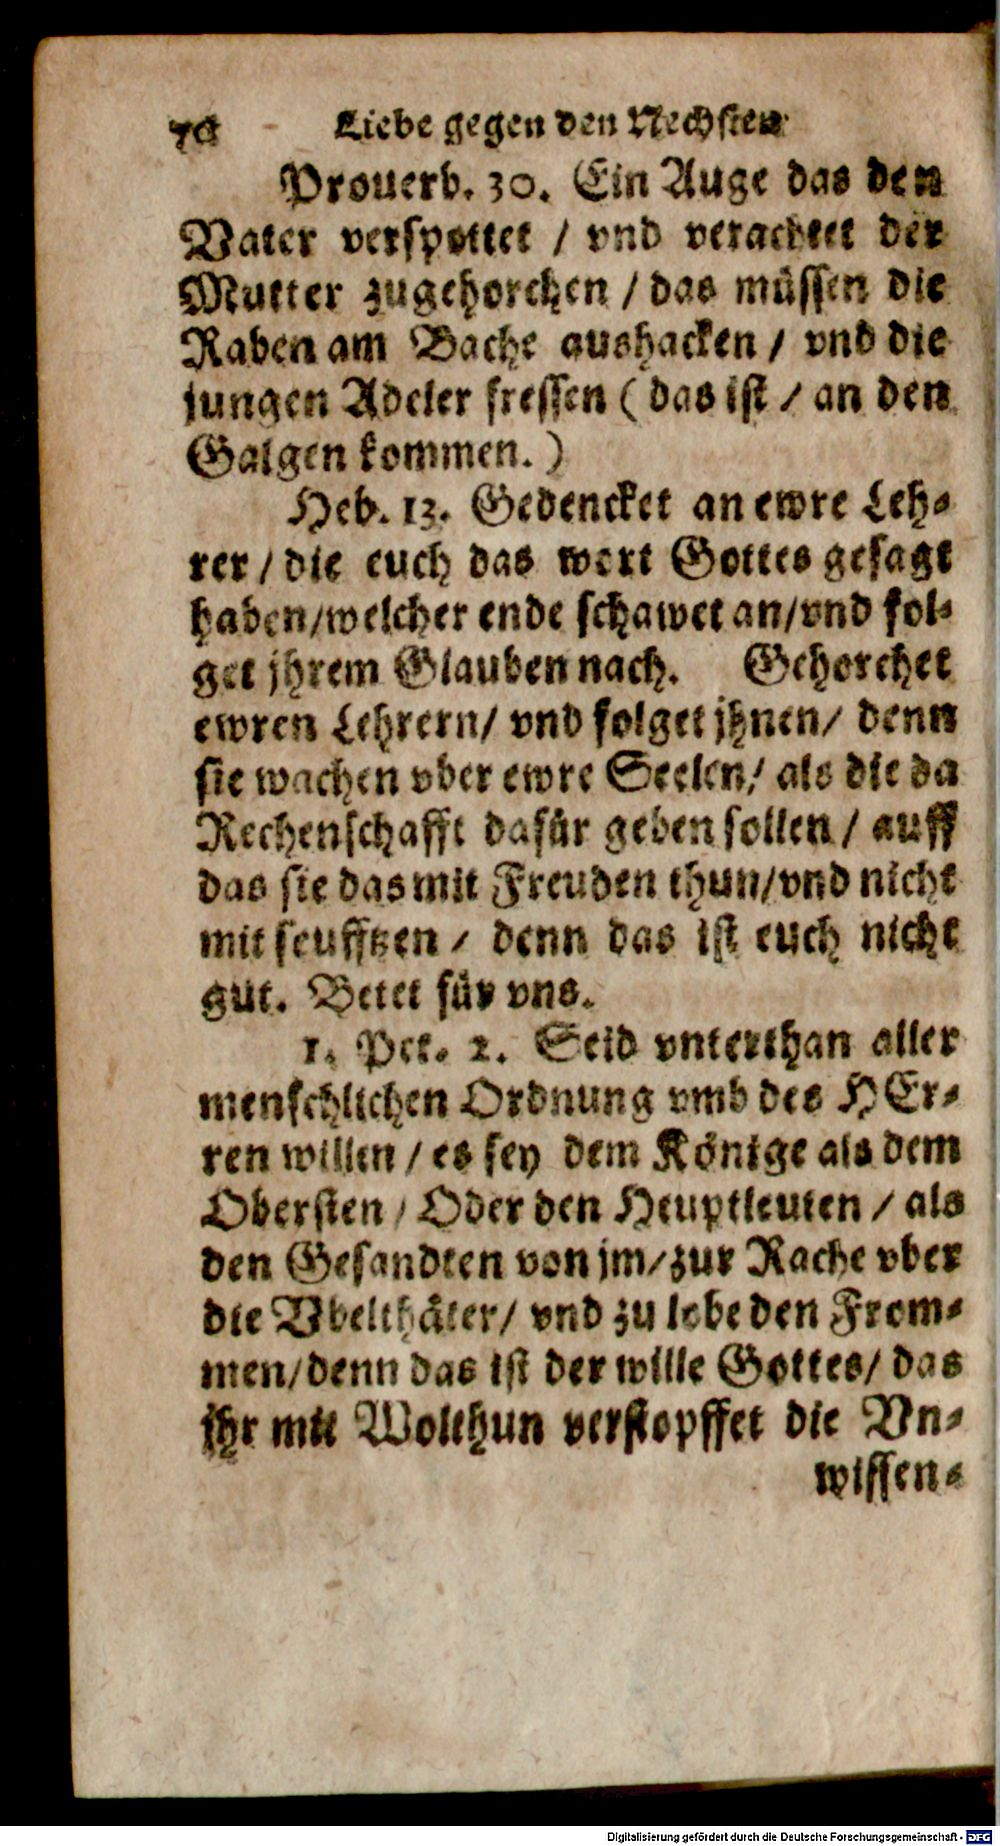 Liebe gegen den Nechsten
Prouerb. 30. Ein Auge das den
Vater verspottet / vnd verachtet der
Mutter zugehorchen / das müssen die
Raben am Bache aushacken / vnd die
jungen Adeler fressen ( das ist / an den
Galgen kommen. )
Heb. 13. Gedencket an ewre Leh-
rer / die euch das wort Gottes gesagt
haben/welcher ende schawet an/vnd fol-
get jhrem Glauben nach. Gehorchet
ewren Lehrern/ vnd folget jhnen/ denn
sie wachen vber ewre Seelen/ als die da
Rechenschafft dafür geben sollen / auff
das sie das mit Freuden thun/vnd nicht
mit seufftzen / denn das ist euch nicht
gut. Betet für vns.
1. Pet. 2. Seid vnterthan aller
menschlichen Ordnung vmb des HEr-
ren willen / es sey dem Könige als dem
Obersten / Oder den Heuptleuten / als
den Gesandten von jm/zur Rache vber
die Vbelthäter/ vnd zu lobe den From-
men/denn das ist der wille Gottes/ das
jhr mit Wolthun verstopffet die Vn-
wissen-
Digitalisierung gefördert durch die Deutsche Forschungsgemeinschaft - DFG